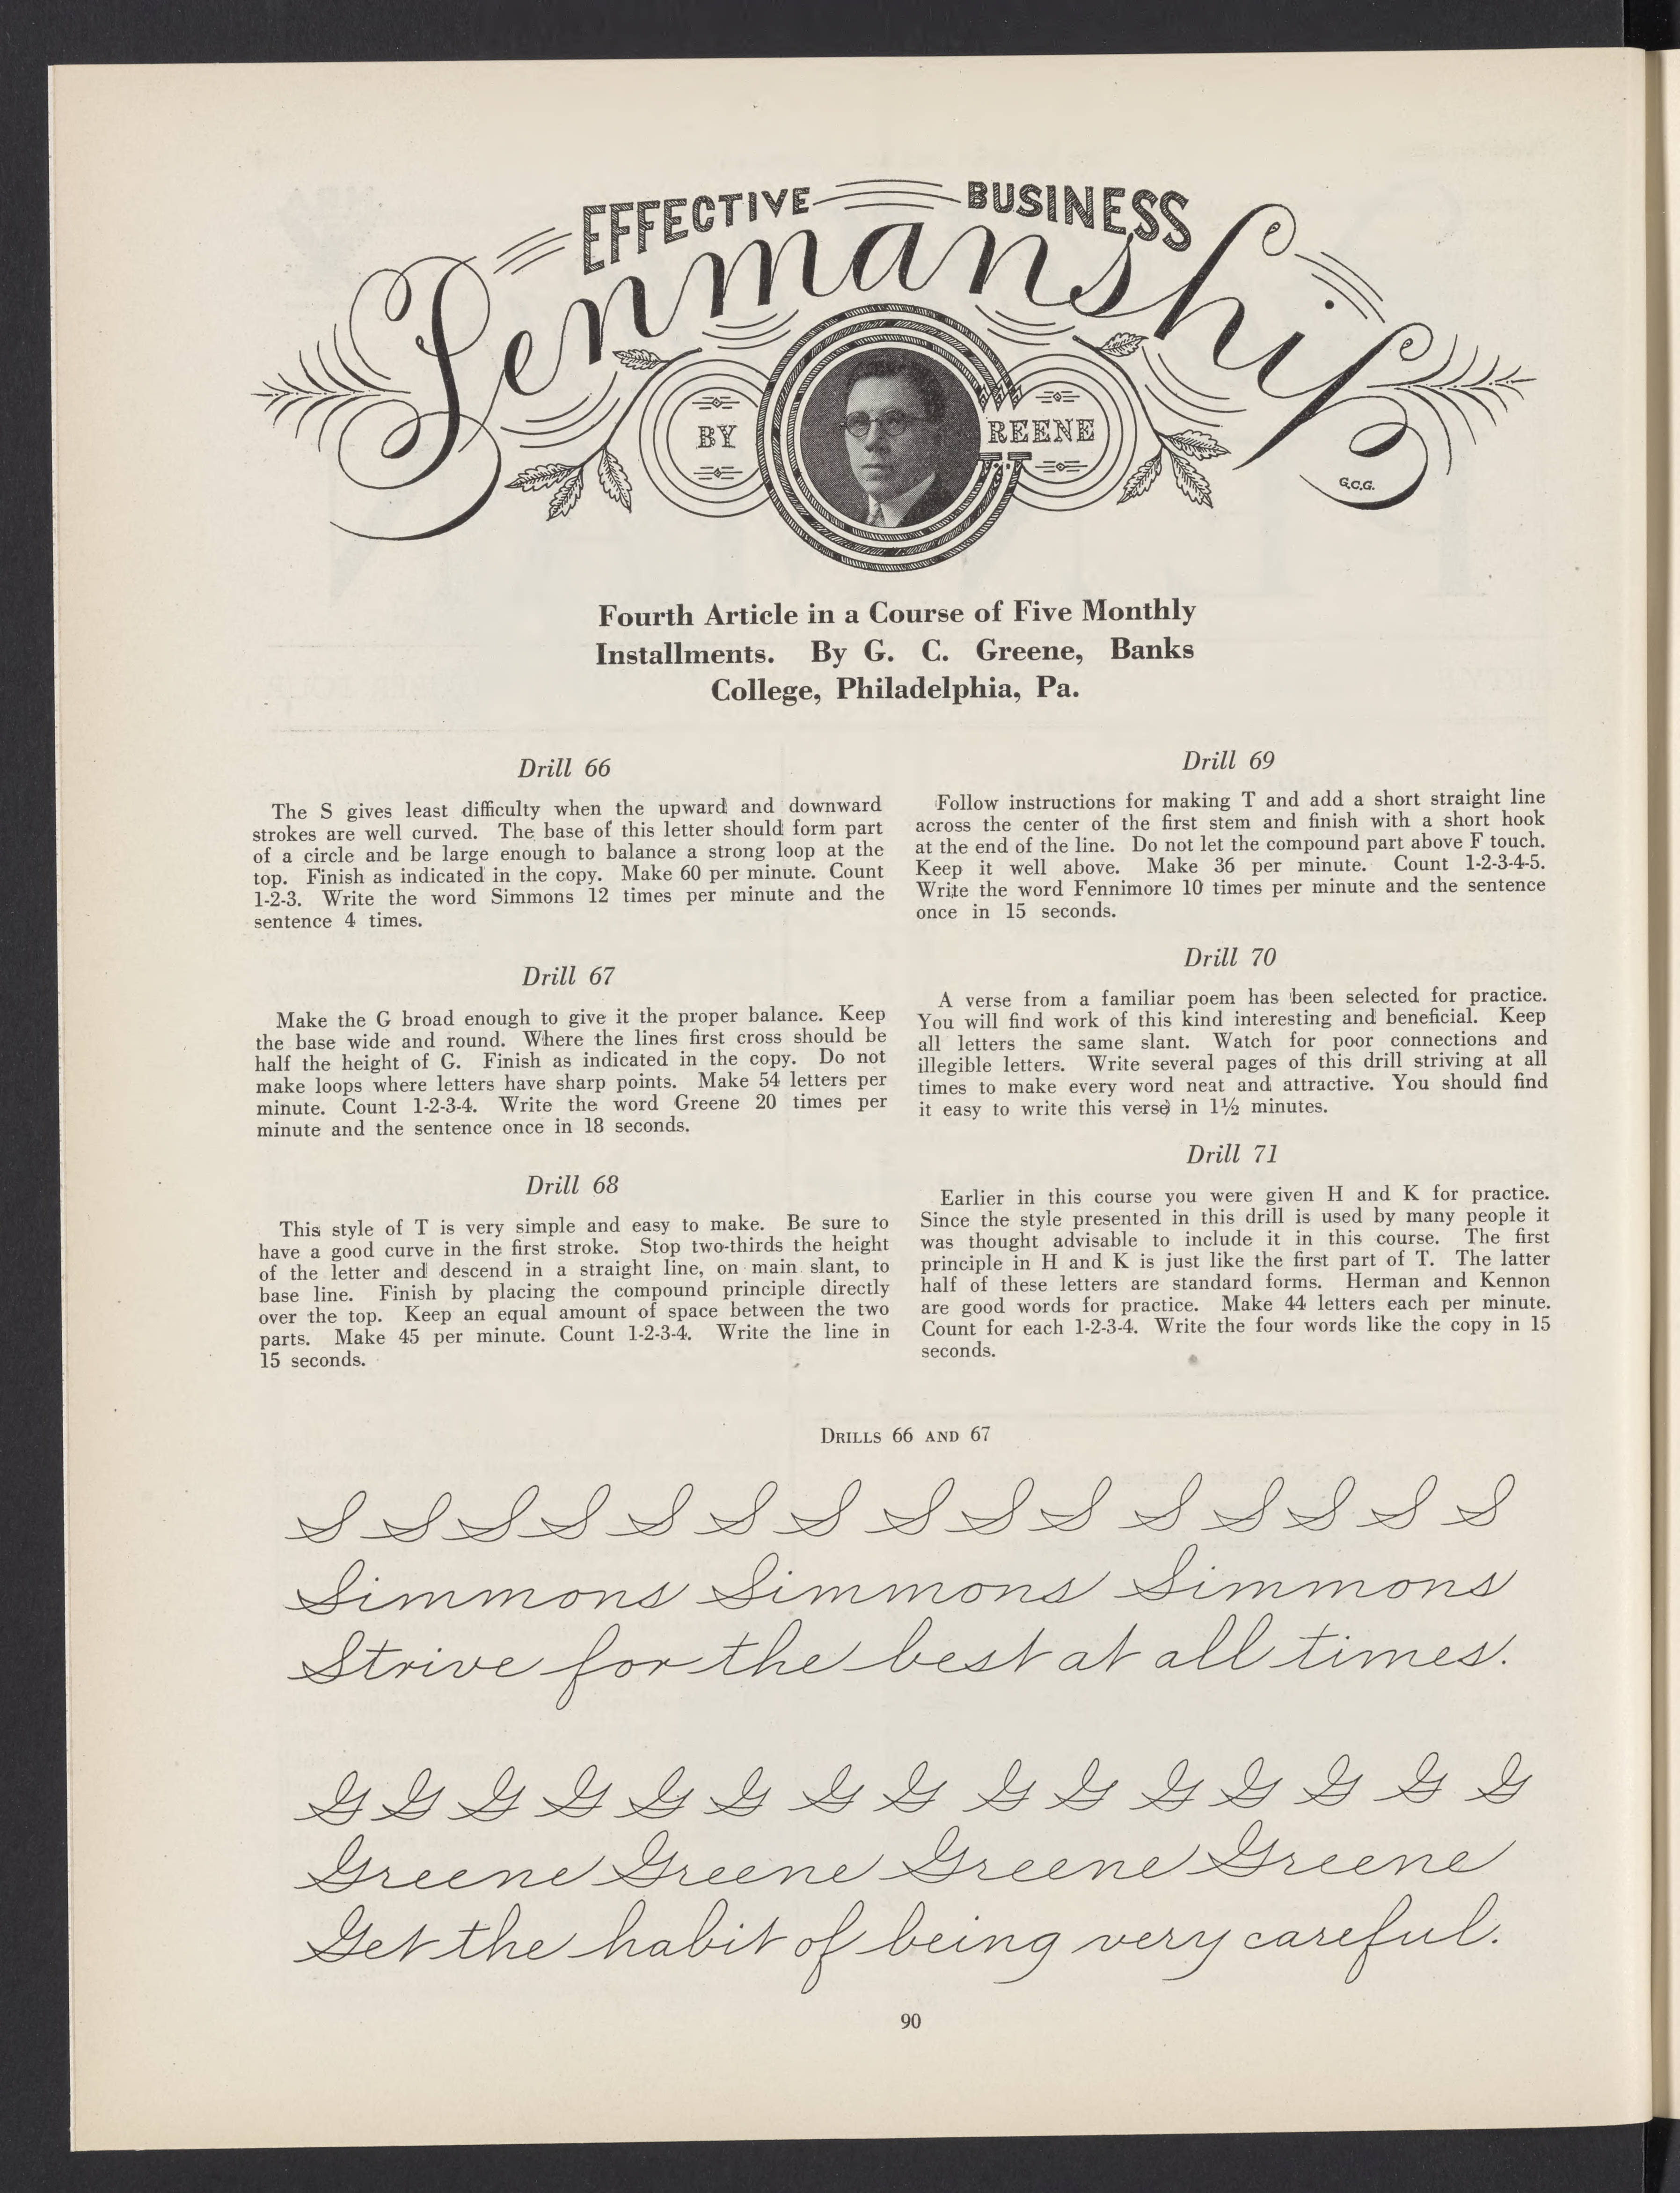 EFFECTIVE BUSINESS
Penmanship
BY GREENE
G.C.G.
Fourth Article in a Course of Five Monthly
Installments. By G. C. Greene, Banks
College, Philadelphia, Pa.
Drill 66
The S gives least difficulty when the upward and downward
strokes are well curved. The base of this letter should form part
of a circle and be large enough to balance a strong loop at the
top. Finish as indicated in the copy. Make 60 per minute. Count
1-2-3. Write the word Simmons 12 times per minute and the
sentence 4 times.
Drill 67
Make the G broad enough to give it the proper balance. Keep
the base wide and round. Where the lines first cross should be
half the height of G. Finish as indicated in the copy. Do not
make loops where letters have sharp points. Make 54 letters per
minute. Count 1-2-3-4. Write the word Greene 20 times per
minute and the sentence once in 18 seconds.
Drill 68
This style of T is very simple and easy to make. Be sure to
have a good curve in the first stroke. Stop two-thirds the height
of the letter and descend in a straight line, on main slant, to
base line. Finish by placing the compound principle directly
over the top. Keep an equal amount of space between the two
parts. Make 45 per minute. Count 1-2-3-4. Write the line in
15 seconds.
Drill 69
Follow instructions for making T and add a short straight line
across the center of the first stem and finish with a short hook
at the end of the line. Do not let the compound part above F touch.
Keep it well above. Make 36 per minute. Count 1-2-3-4-5.
Write the word Fennimore 10 times per minute and the sentence
once in 15 seconds.
Drill 70
A verse from a familiar poem has been selected for practice.
You will find work of this kind interesting and beneficial. Keep
all letters the same slant. Watch for poor connections and
illegible letters. Write several pages of this drill striving at all
times to make every word neat and attractive. You should find
it easy to write this verse in 1½ minutes.
Drill 71
Earlier in this course you were given H and K for practice.
Since the style presented in this drill is used by many people it
was thought advisable to include it in this course. The first
principle in H and K is just like the first part of T. The latter
half of these letters are standard forms. Herman and Kennon
are good words for practice. Make 44 letters each per minute.
Count for each 1-2-3-4. Write the four words like the copy in 15
seconds.
DRILLS 66 AND 67
S S S S S S S S S S S S S S S
Simmons Simmons Simmons
Strive for the best at all times.
G G G G G G G G G G G G G G G
Greene Greene Greene Greene
Get the habit of being very careful.
90